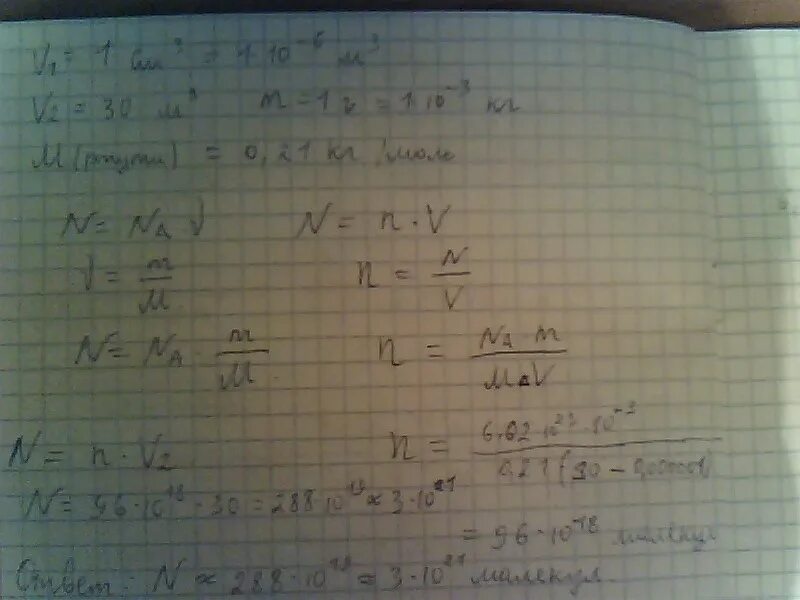 V₁ = 1 см³ = 1·10⁻⁶ м³
V₂ = 30 м³ m = 1 г = 1·10⁻³ кг
M (ртути) = 0,21 кг/моль
N = N_A ν N = n · V
ν = m/M n = N/V
N = N_A · m/M n = N_A m / M · V
N = n · V₂ n = 6.02·10²³·10⁻³ / 0,21 (30 –
N = 96·10¹⁸ · 30 = 288·10¹⁹ ≈ 3·10²¹
= 96·10⁻¹⁸ малекул
Ответ: N ≈ 288·10¹⁹ = 3·10²¹ малекул.